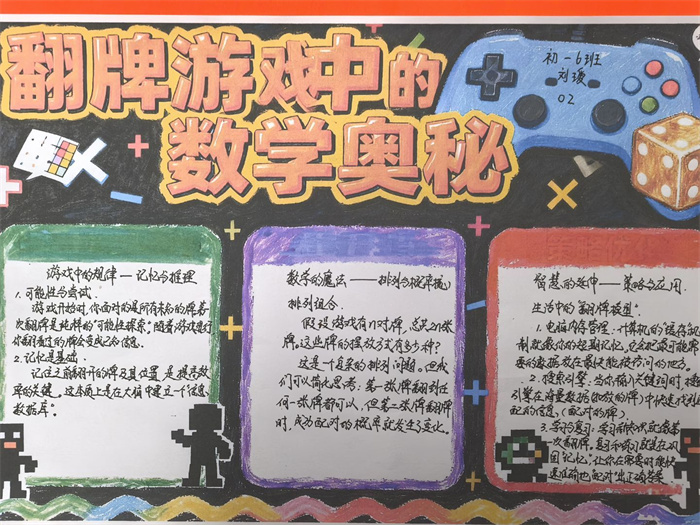 翻牌游戏中的
数学奥秘
初一6班
刘瑷
02
游戏中的规律—记忆与推理
1.可能性与尝试.
游戏开始时,你面对的是所有未知的牌.首
次翻牌是纯粹的"可能性探索".随着游戏进行
你翻看过的牌会变成已知信息.
2.记忆是基础.
记住之前翻开的牌及其位置,是提高效
率的关键,这本质上是在大脑中建立一个"信息
数据库".
数学的魔法——排列与概率
排列组合.
假设游戏有n对牌,总共2n张
牌.这些牌的摆放方式有多少种?
这是一个复杂的排列问题.但我
们可以简化思考:第一张牌翻到任
何一张牌都可以,但第二张牌翻牌
时,成功配对的概率就发生了变化.
智慧的延伸—策略与应用.
生活中的"翻牌模型".
1.电脑内存管理.计算机的"缓存机
制就像你的短期记忆,它会把最可能需
要的数据放在最快能被访问的地方.
2.搜索引擎:当你输入关键词时,搜索
引擎在海量数据(如放的牌)中快速找到
配的信息(配对的牌).
3.学习与复习:学习新知识就像第
一次翻牌.复习练习就是在巩
固"记忆",让你在需要时能快
速准确地"配对"出正确答案